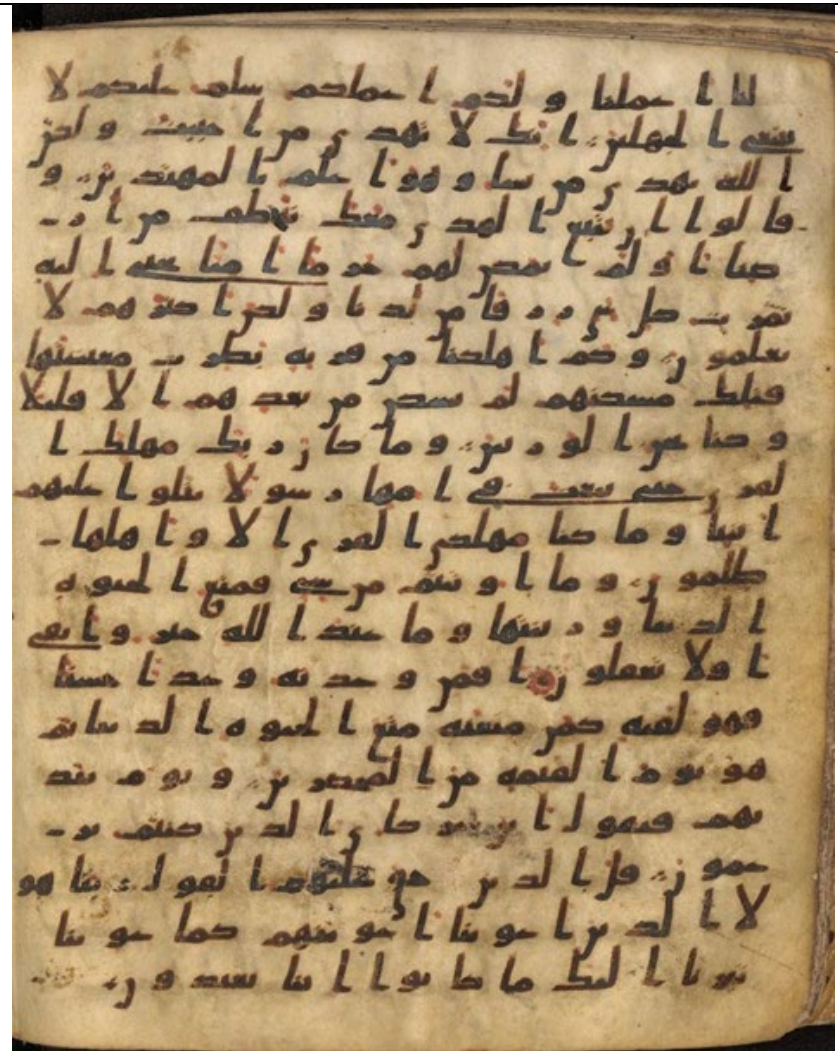 لنا اعملنا ولكم اعملكم سلم عليكم لا
نبتغى الجهلين انك لا تهدى من احببت ولكن
الله يهدى من يشا وهو اعلم بالمهتدين و
قالوا ان نتبع الهدى معك نتخطف من ار
ضنا او لم نمكن لهم حرما امنا يجبى اليه
ثمرت كل شى رزقا من لدنا ولكن اكثرهم لا
يعلمون وكم اهلكنا من قرية بطرت معيشتها
فتلك مسكنهم لم تسكن من بعدهم الا قليلا
وكنا نحن الورثين وما كان ربك مهلك ا
لقرى حتى يبعث فى امها رسولا يتلوا عليهم
ايتنا وما كنا مهلكى القرى الا واهلها
ظلمون وما اوتيتم من شى فمتع الحيوة
الدنيا وزينتها وما عند الله خير وابقى
افلا تعقلون افمن وعدنه وعدا حسنا
فهو لقيه كمن متعنه متع الحيوة الدنيا ثم
هو يوم القيمة من المحضرين ويوم يند
يهم فيقول اين شركاى الذين كنتم تز
عمون قل الذين حق عليهم القول ربنا هو
لا الذين اغوينا اغوينهم كما غوينا
تبرانا اليك ما كانوا ايانا يعبدون